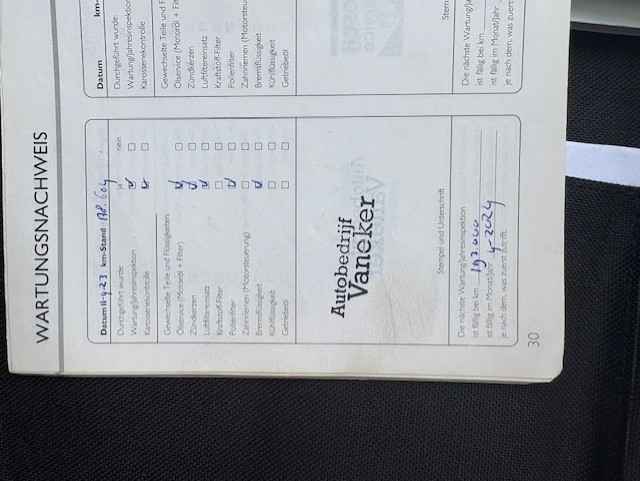 WARTUNGSNACHWEIS
Datum 11-4-23 km-Stand 178.604
Durchgeführt wurde: ja nein
Wartung/Jahresinspektion
Karosseriekontrolle
Gewechselte Teile und Flüssigkeiten:
Ölservice (Motoröl + Filter)
Zündkerzen
Luftfiltereinsatz
Kraftstoff-Filter
Pollenfilter
Zahnriemen (Motorsteuerung)
Bremsflüssigkeit
Kühlflüssigkeit
Getriebeöl
Autobedrijf
Vaneker
Stempel und Unterschrift
Die nächste Wartung/Jahresinspektion
ist fällig bei km 193.000
ist fällig im Monat/Jahr 4-2024
je nach dem, was zuerst zutrifft.
30
Datum km-
Durchgeführt wurde:
Wartung/Jahresinspektion
Karosseriekontrolle
Gewechselte Teile und F
Ölservice (Motoröl + Filte
Zündkerzen
Luftfiltereinsatz
Kraftstoff-Filter
Pollenfilter
Zahnriemen (Motorsteuer
Bremsflüssigkeit
Kühlflüssigkeit
Getriebeöl
Stem
Die nächste Wartung/J
ist fällig bei km
ist fällig im Monat/Jahr
je nach dem, was zuerst